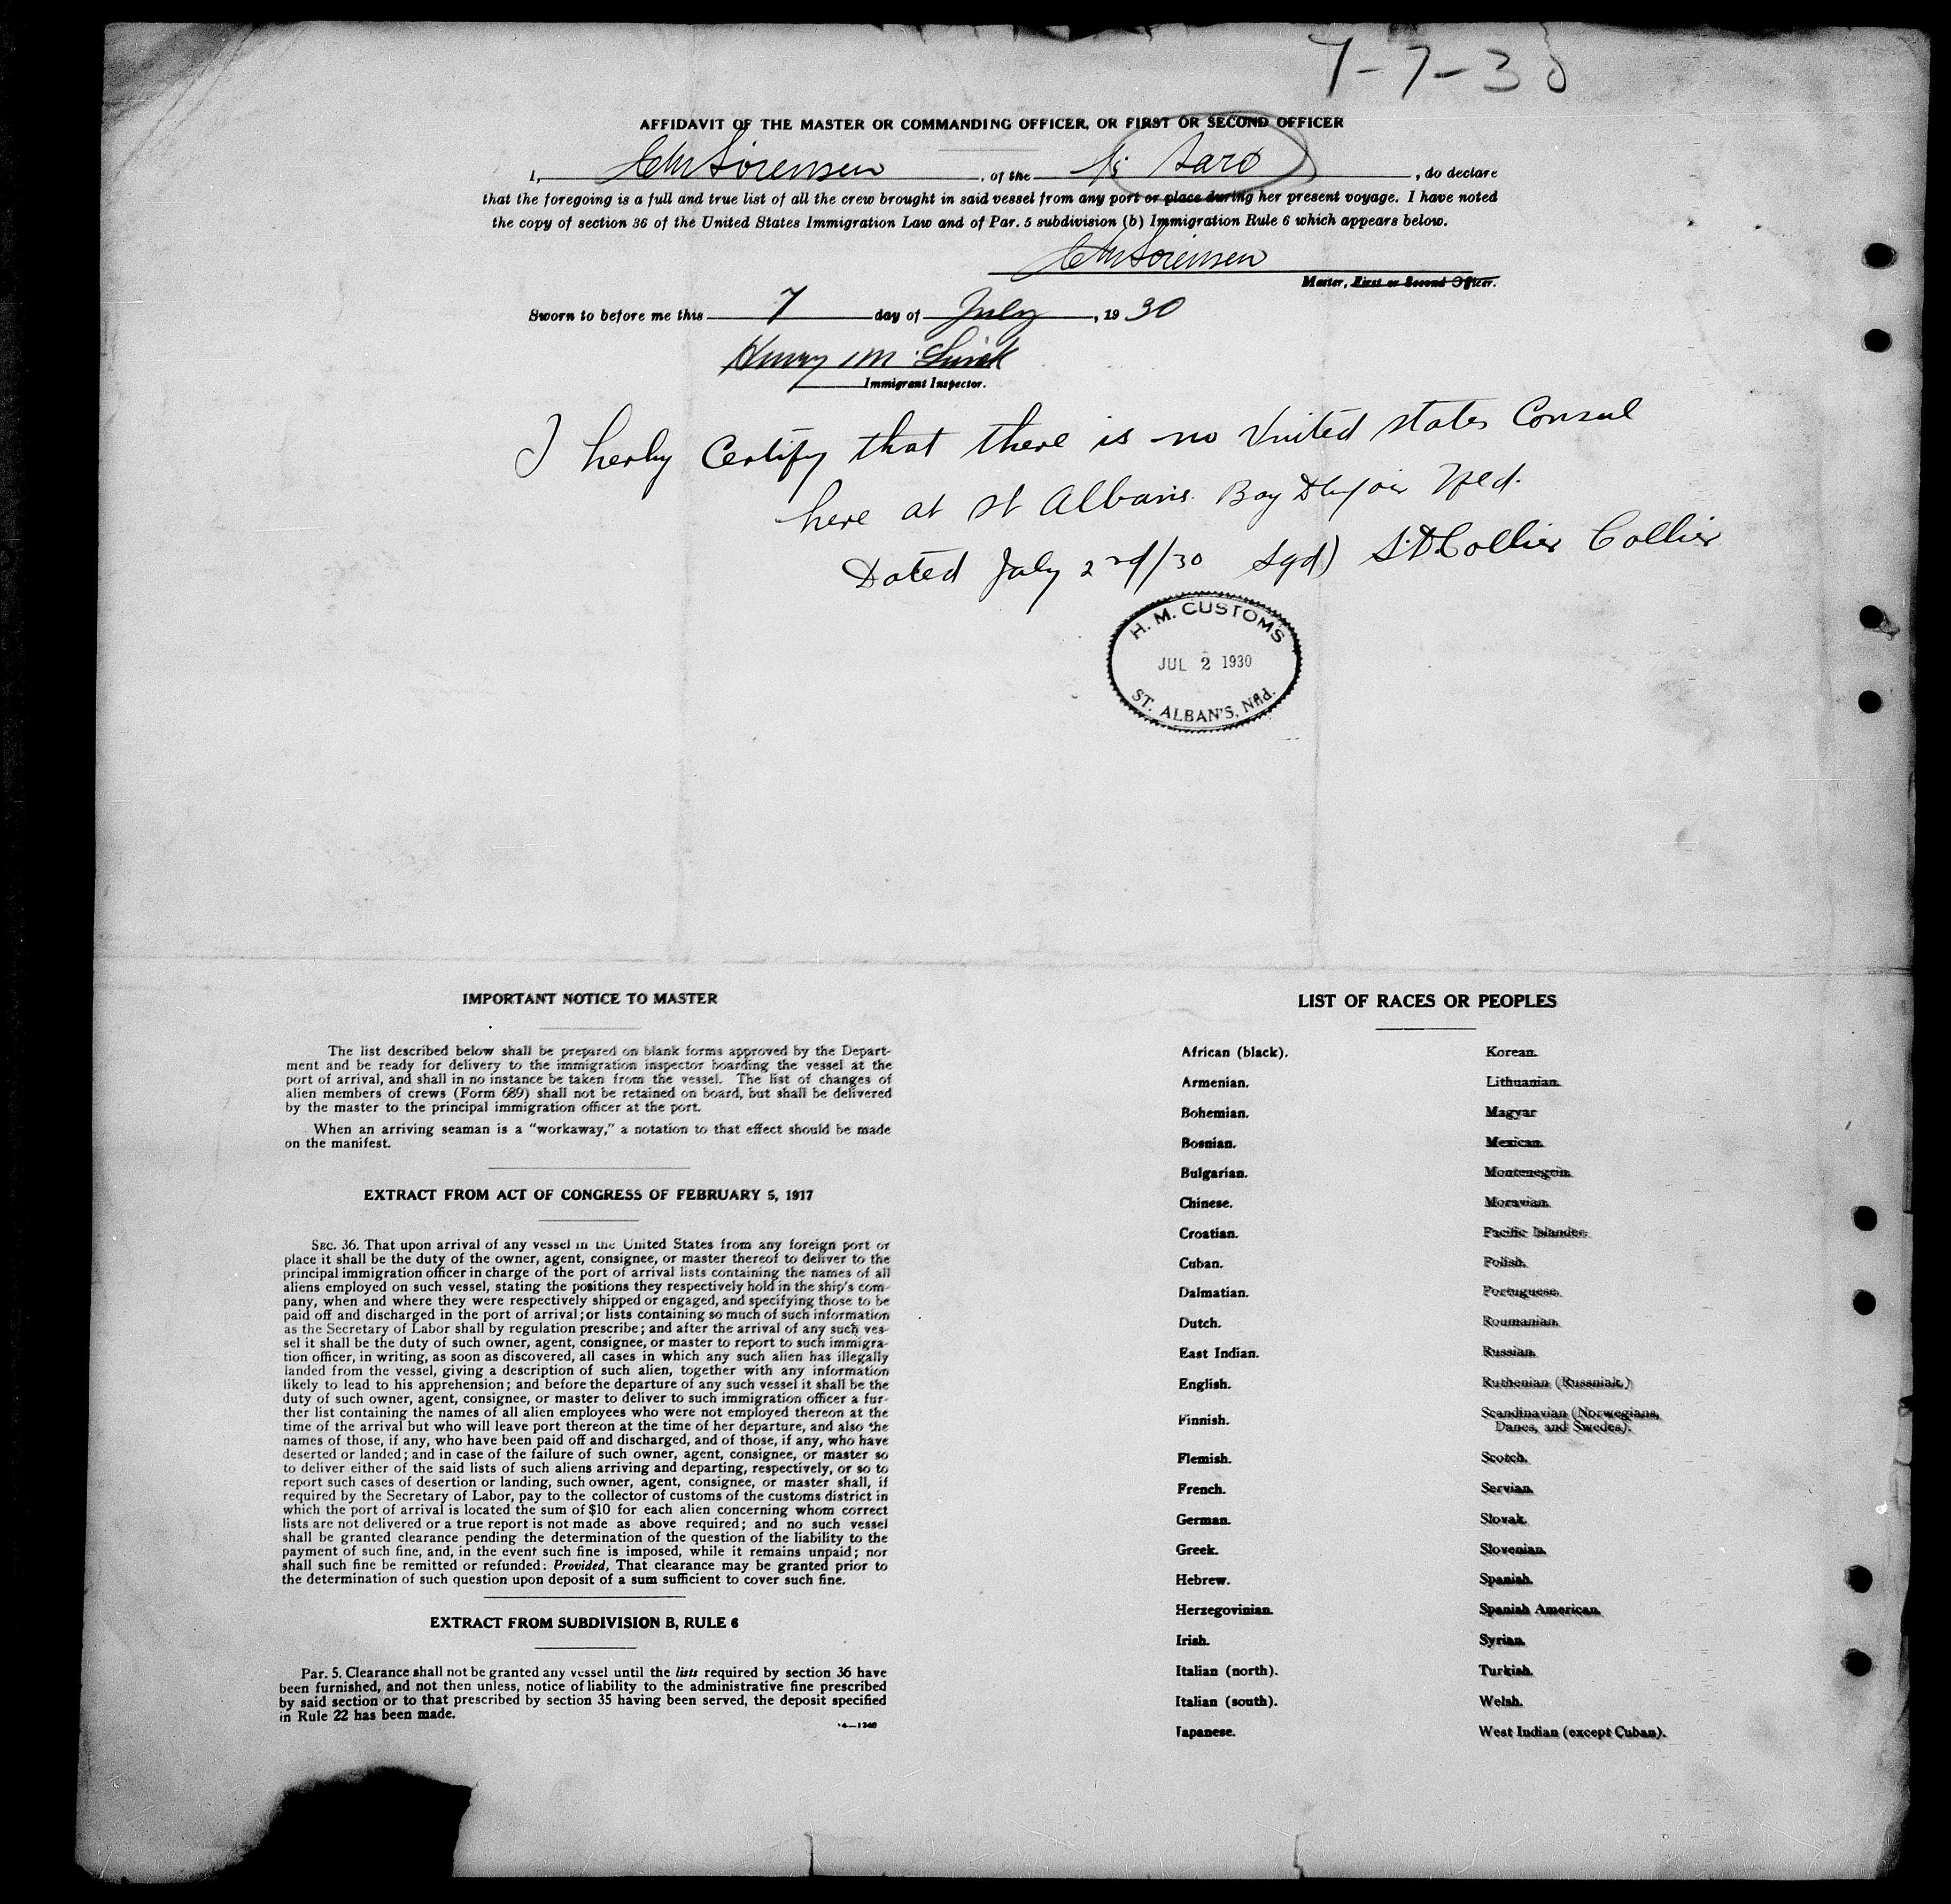 7-7-30
AFFIDAVIT OF THE MASTER OR COMMANDING OFFICER, OR FIRST OR SECOND OFFICER
I, CM Sörensen, of the S/S Sarö, do declare
that the foregoing is a full and true list of all the crew brought in said vessel from any port or place during her present voyage. I have noted
the copy of section 36 of the United States Immigration Law and of Par. 5 subdivision (b) Immigration Rule 6 which appears below.
CM Sörensen
Master, First or Second Officer.
Sworn to before me this 7 day of July, 1930
Henry M.
Immigrant Inspector.
I herby Certify that there is no United States Consul
here at St Albans Bay Nfld.
Dated July 2nd/30 Sgd) S.D Collier Collier
H. M. CUSTOMS
JUL 2 1930
ST. ALBAN'S, Nfld.
IMPORTANT NOTICE TO MASTER
The list described below shall be prepared on blank forms approved by the Depart-
ment and be ready for delivery to the immigration inspector boarding the vessel at the
port of arrival, and shall in no instance be taken from the vessel. The list of changes of
alien members of crews (Form 689) shall not be retained on board, but shall be delivered
by the master to the principal immigration officer at the port.
When an arriving seaman is a "workaway," a notation to that effect should be made
on the manifest.
EXTRACT FROM ACT OF CONGRESS OF FEBRUARY 5, 1917
SEC. 36. That upon arrival of any vessel in the United States from any foreign port or
place it shall be the duty of the owner, agent, consignee, or master thereof to deliver to the
principal immigration officer in charge of the port of arrival lists containing the names of all
aliens employed on such vessel, stating the positions they respectively hold in the ship's com-
pany, when and where they were respectively shipped or engaged, and specifying those to be
paid off and discharged in the port of arrival; or lists containing so much of such information
as the Secretary of Labor shall by regulation prescribe; and after the arrival of any such ves-
sel it shall be the duty of such owner, agent, consignee, or master to report to such immigra-
tion officer, in writing, as soon as discovered, all cases in which any such alien has illegally
landed from the vessel, giving a description of such alien, together with any information
likely to lead to his apprehension; and before the departure of any such vessel it shall be the
duty of such owner, agent, consignee, or master to deliver to such immigration officer a fur-
ther list containing the names of all alien employees who were not employed thereon at the
time of the arrival but who will leave port thereon at the time of her departure, and also the
names of those, if any, who have been paid off and discharged, and of those, if any, who have
deserted or landed; and in case of the failure of such owner, agent, consignee, or master so
to deliver either of the said lists of such aliens arriving and departing, respectively, or so to
report such cases of desertion or landing, such owner, agent, consignee, or master shall, if
required by the Secretary of Labor, pay to the collector of customs of the customs district in
which the port of arrival is located the sum of $10 for each alien concerning whom correct
lists are not delivered or a true report is not made as above required; and no such vessel
shall be granted clearance pending the determination of the question of the liability to the
payment of such fine, and, in the event such fine is imposed, while it remains unpaid; nor
shall such fine be remitted or refunded: Provided, That clearance may be granted prior to
the determination of such question upon deposit of a sum sufficient to cover such fine.
EXTRACT FROM SUBDIVISION B, RULE 6
Par. 5. Clearance shall not be granted any vessel until the lists required by section 36 have
been furnished, and not then unless, notice of liability to the administrative fine prescribed
by said section or to that prescribed by section 35 having been served, the deposit specified
in Rule 22 has been made.
LIST OF RACES OR PEOPLES
African (black).
Armenian.
Bohemian.
Bosnian.
Bulgarian.
Chinese.
Croatian.
Cuban.
Dalmatian.
Dutch.
East Indian.
English.
Finnish.
Flemish.
French.
German.
Greek.
Hebrew.
Herzegovinian.
Irish.
Italian (north).
Italian (south).
Japanese.
Korean.
Lithuanian.
Magyar
Mexican.
Montenegrin.
Moravian.
Pacific Islander.
Polish.
Portuguese.
Roumanian.
Russian.
Ruthenian (Russniak.)
Scandinavian (Norwegians,
Danes, and Swedes).
Scotch.
Servian.
Slovak.
Slovenian.
Spanish.
Spanish American.
Syrian.
Turkish.
Welsh.
West Indian (except Cuban).